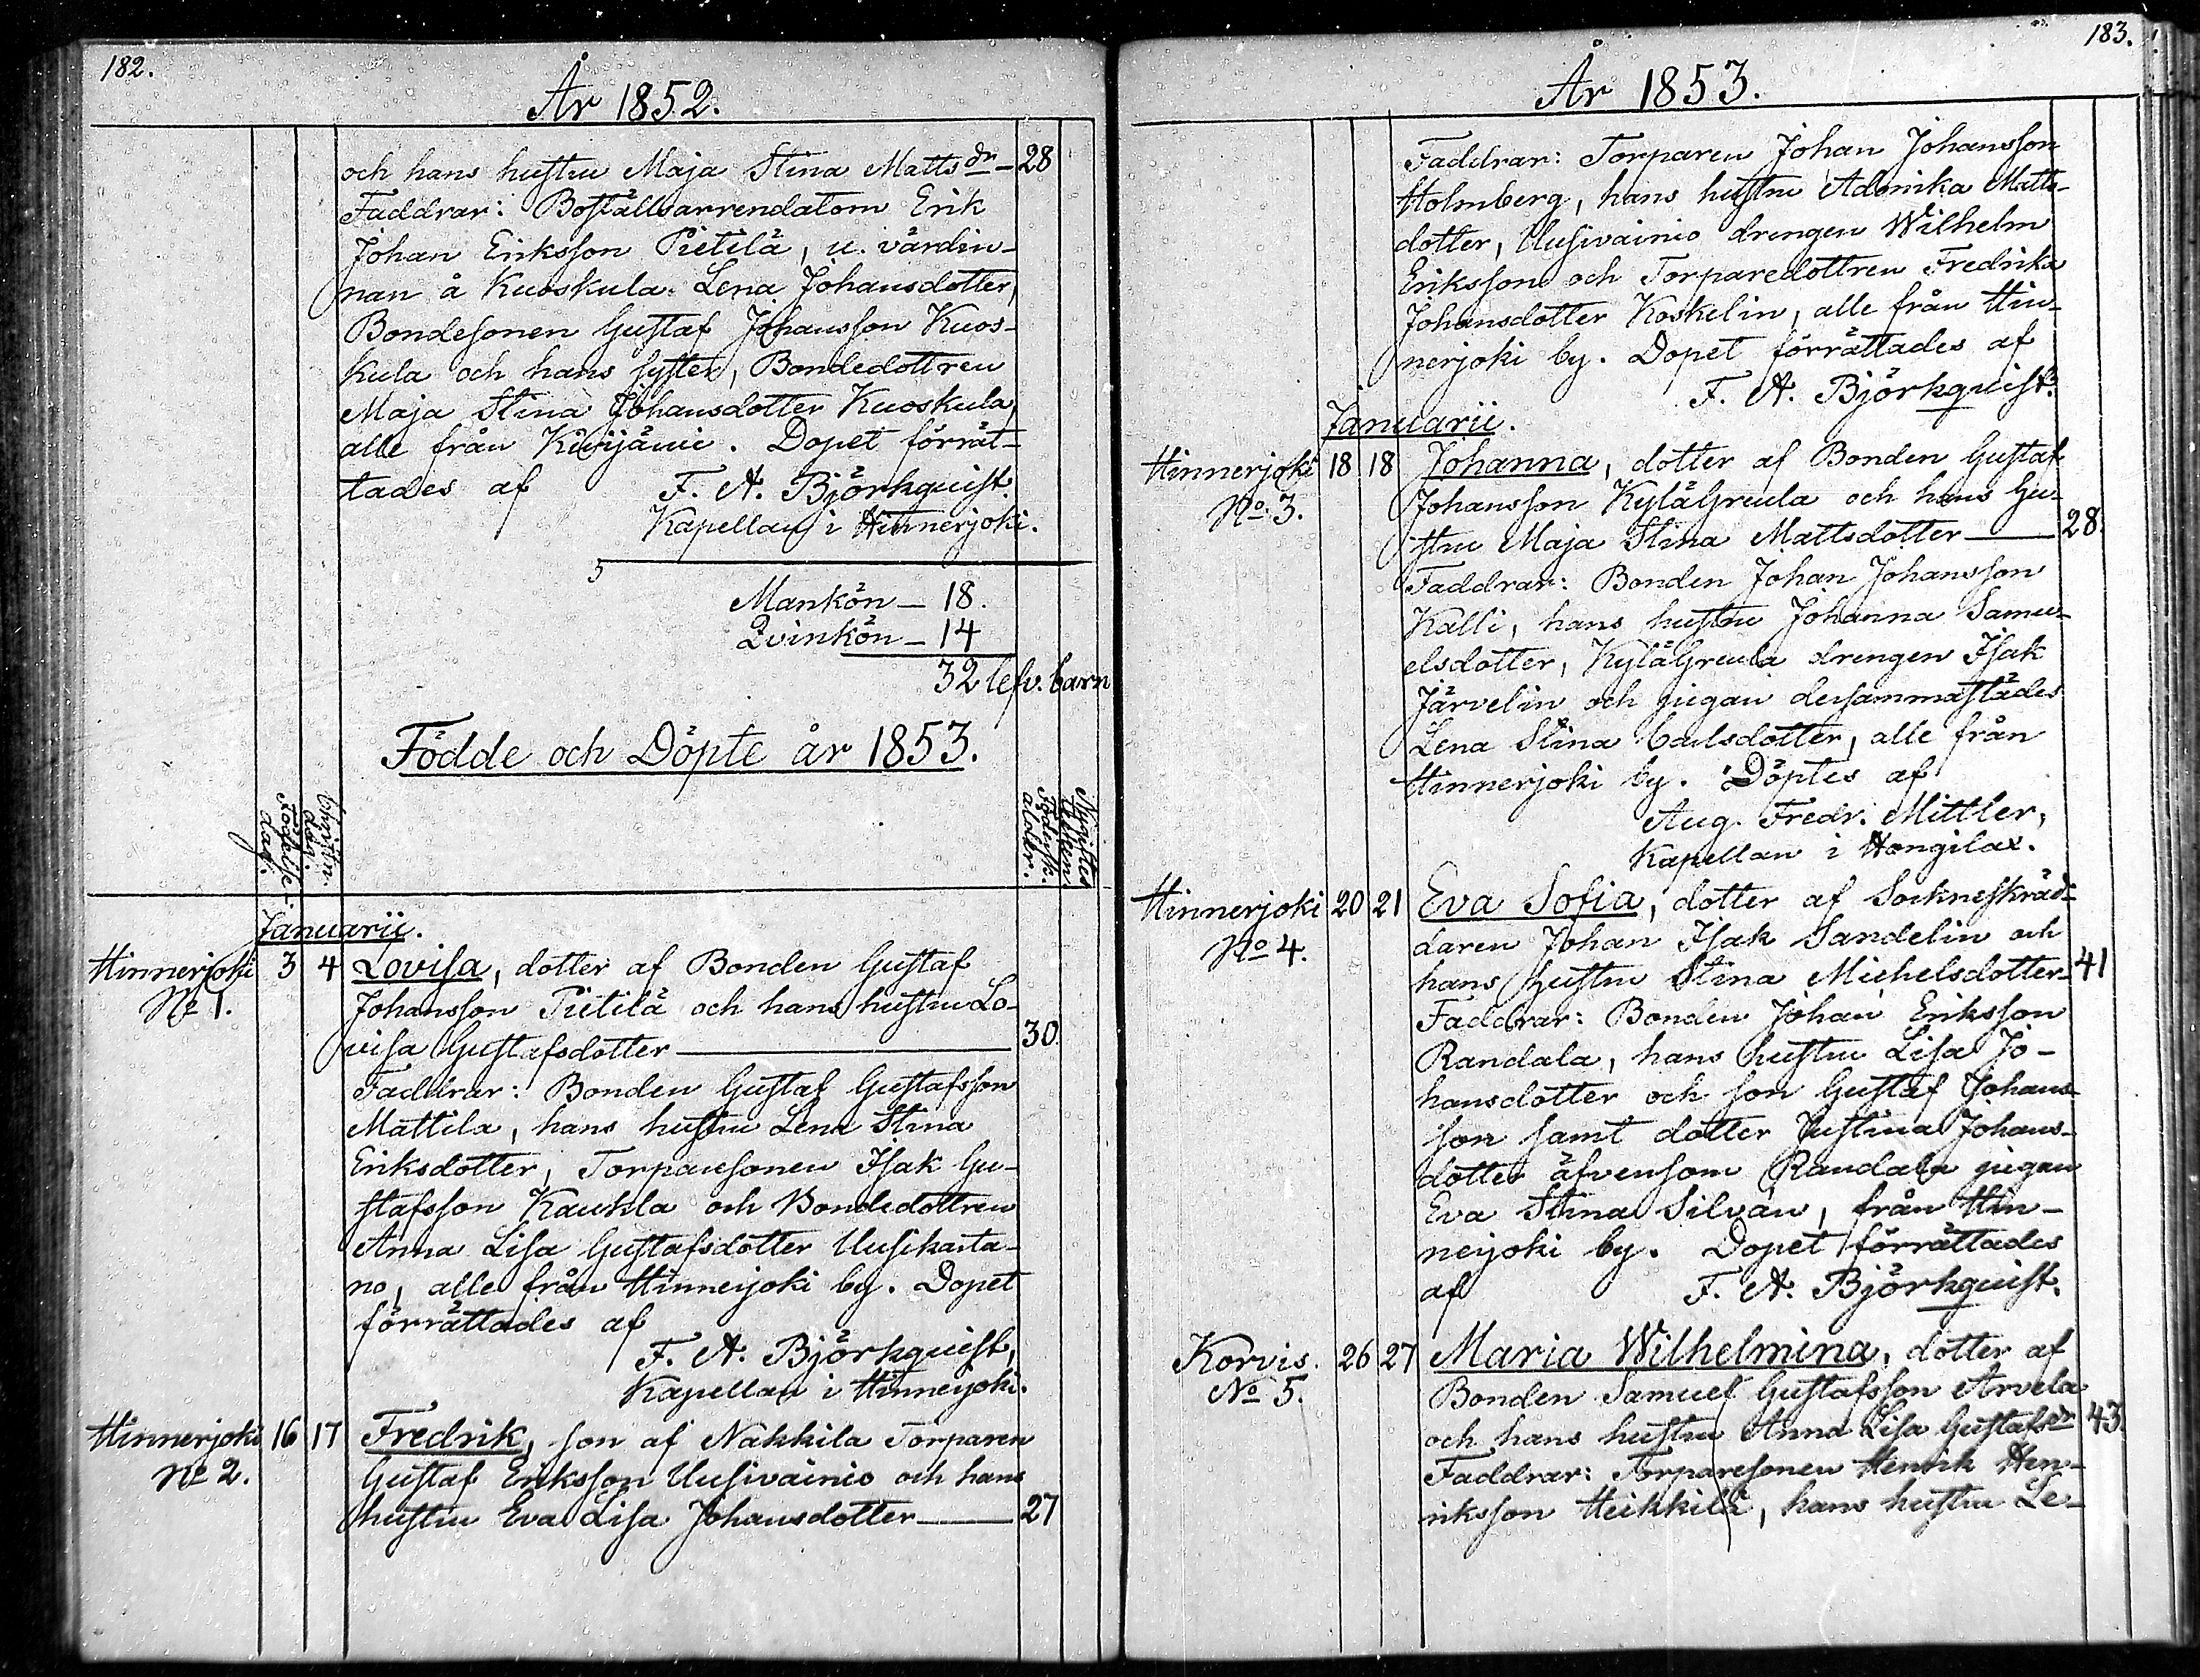 182.
År 1852.
och hans hustru Maja Stina Mattsdr — 28
Faddrar: Boställsarrendatorn Erik
Johan Eriksson Pietilä, u. värdin-
nan å Kuoskula Lena Johansdotter,
Bondesonen Gustaf Johansson Kuos-
kula och hans syster, Bondedottren
Maja Stina Johansdotter Kuoskula,
alle från Kivijärvi. Dopet förrät-
tades af F. A. Björkquist.
Kapellan i Hinnerjoki.
Mankön — 18.
Qvinkön — 14
32 lefv. barn
Födde och Döpte år 1853.
Födelse-dag.
Christn. dag.
Föderrsk. ålder.
Januarii.
Hinnerjoki 3 4 Lovisa, dotter af Bonden Gustaf
No 1. Johansson Pietilä och hans hustru Lo-
visa Gustafsdotter — 30
Faddrar: Bonden Gustaf Gustafsson
Mattila, hans hustru Lena Stina
Eriksdotter, Torparesonen Isak Gu-
stafsson Kaukla och Bondedottren
Anna Lisa Gustafsdotter Uusikarta-
no, alle från Hinnerjoki by. Dopet
förrättades af
F. A. Björkquist,
Kapellan i Hinnerjoki.
Hinnerjoki 16 17 Fredrik, son af Näkkilä Torparen
No 2. Gustaf Eriksson Uusivainio och hans
hustru Eva Lisa Johansdotter — 27
183.
År 1853.
Faddrar: Torparen Johan Johansson
Holmberg, hans hustru Adamika Matts-
dotter, Uusivainio drengen Wilhelm
Eriksson och Torparedottren Fredrika
Johansdotter Koskelin, alle från Hin-
nerjoki by. Dopet förrättades af
F. A. Björkquist.
Januarii.
Hinnerjoki 18 18 Johanna, dotter af Bonden Gustaf
No 3. Johansson Kylägreula och hans hu-
stru Maja Stina Mattsdotter — 28.
Faddrar: Bonden Johan Johansson
Kalli, hans hustru Johanna Samu-
elsdotter, Kylägreula drengen Isak
Järvelin och pigan dersammastädes
Lena Stina Carlsdotter, alle från
Hinnerjoki by. Döptes af
Aug. Fredr. Mittler,
Kapellan i Hongilax.
Hinnerjoki 20 21 Eva Sofia, dotter af Sockneskräd-
No 4. daren Johan Isak Sandelin och
hans hustru Stina Michelsdotter — 41
Faddrar: Bonden Johan Eriksson
Randala, hans hustru Lisa Jo-
hansdotter och son Gustaf Johans-
son samt dotter Justina Johans-
dotter äfvensom Randala pigan
Eva Stina Silvän, från Hin-
nerjoki by. Dopet förrättades
af F. A. Björkquist.
Korvis. 26 27 Maria Wilhelmina, dotter af
No 5. Bonden Samuel Gustafsson Arvela
och hans hustru Anna Lisa Gustafsdr 43.
Faddrar: Torparesonen Henrik Hen-
riksson Heikkilä, hans hustru Le-